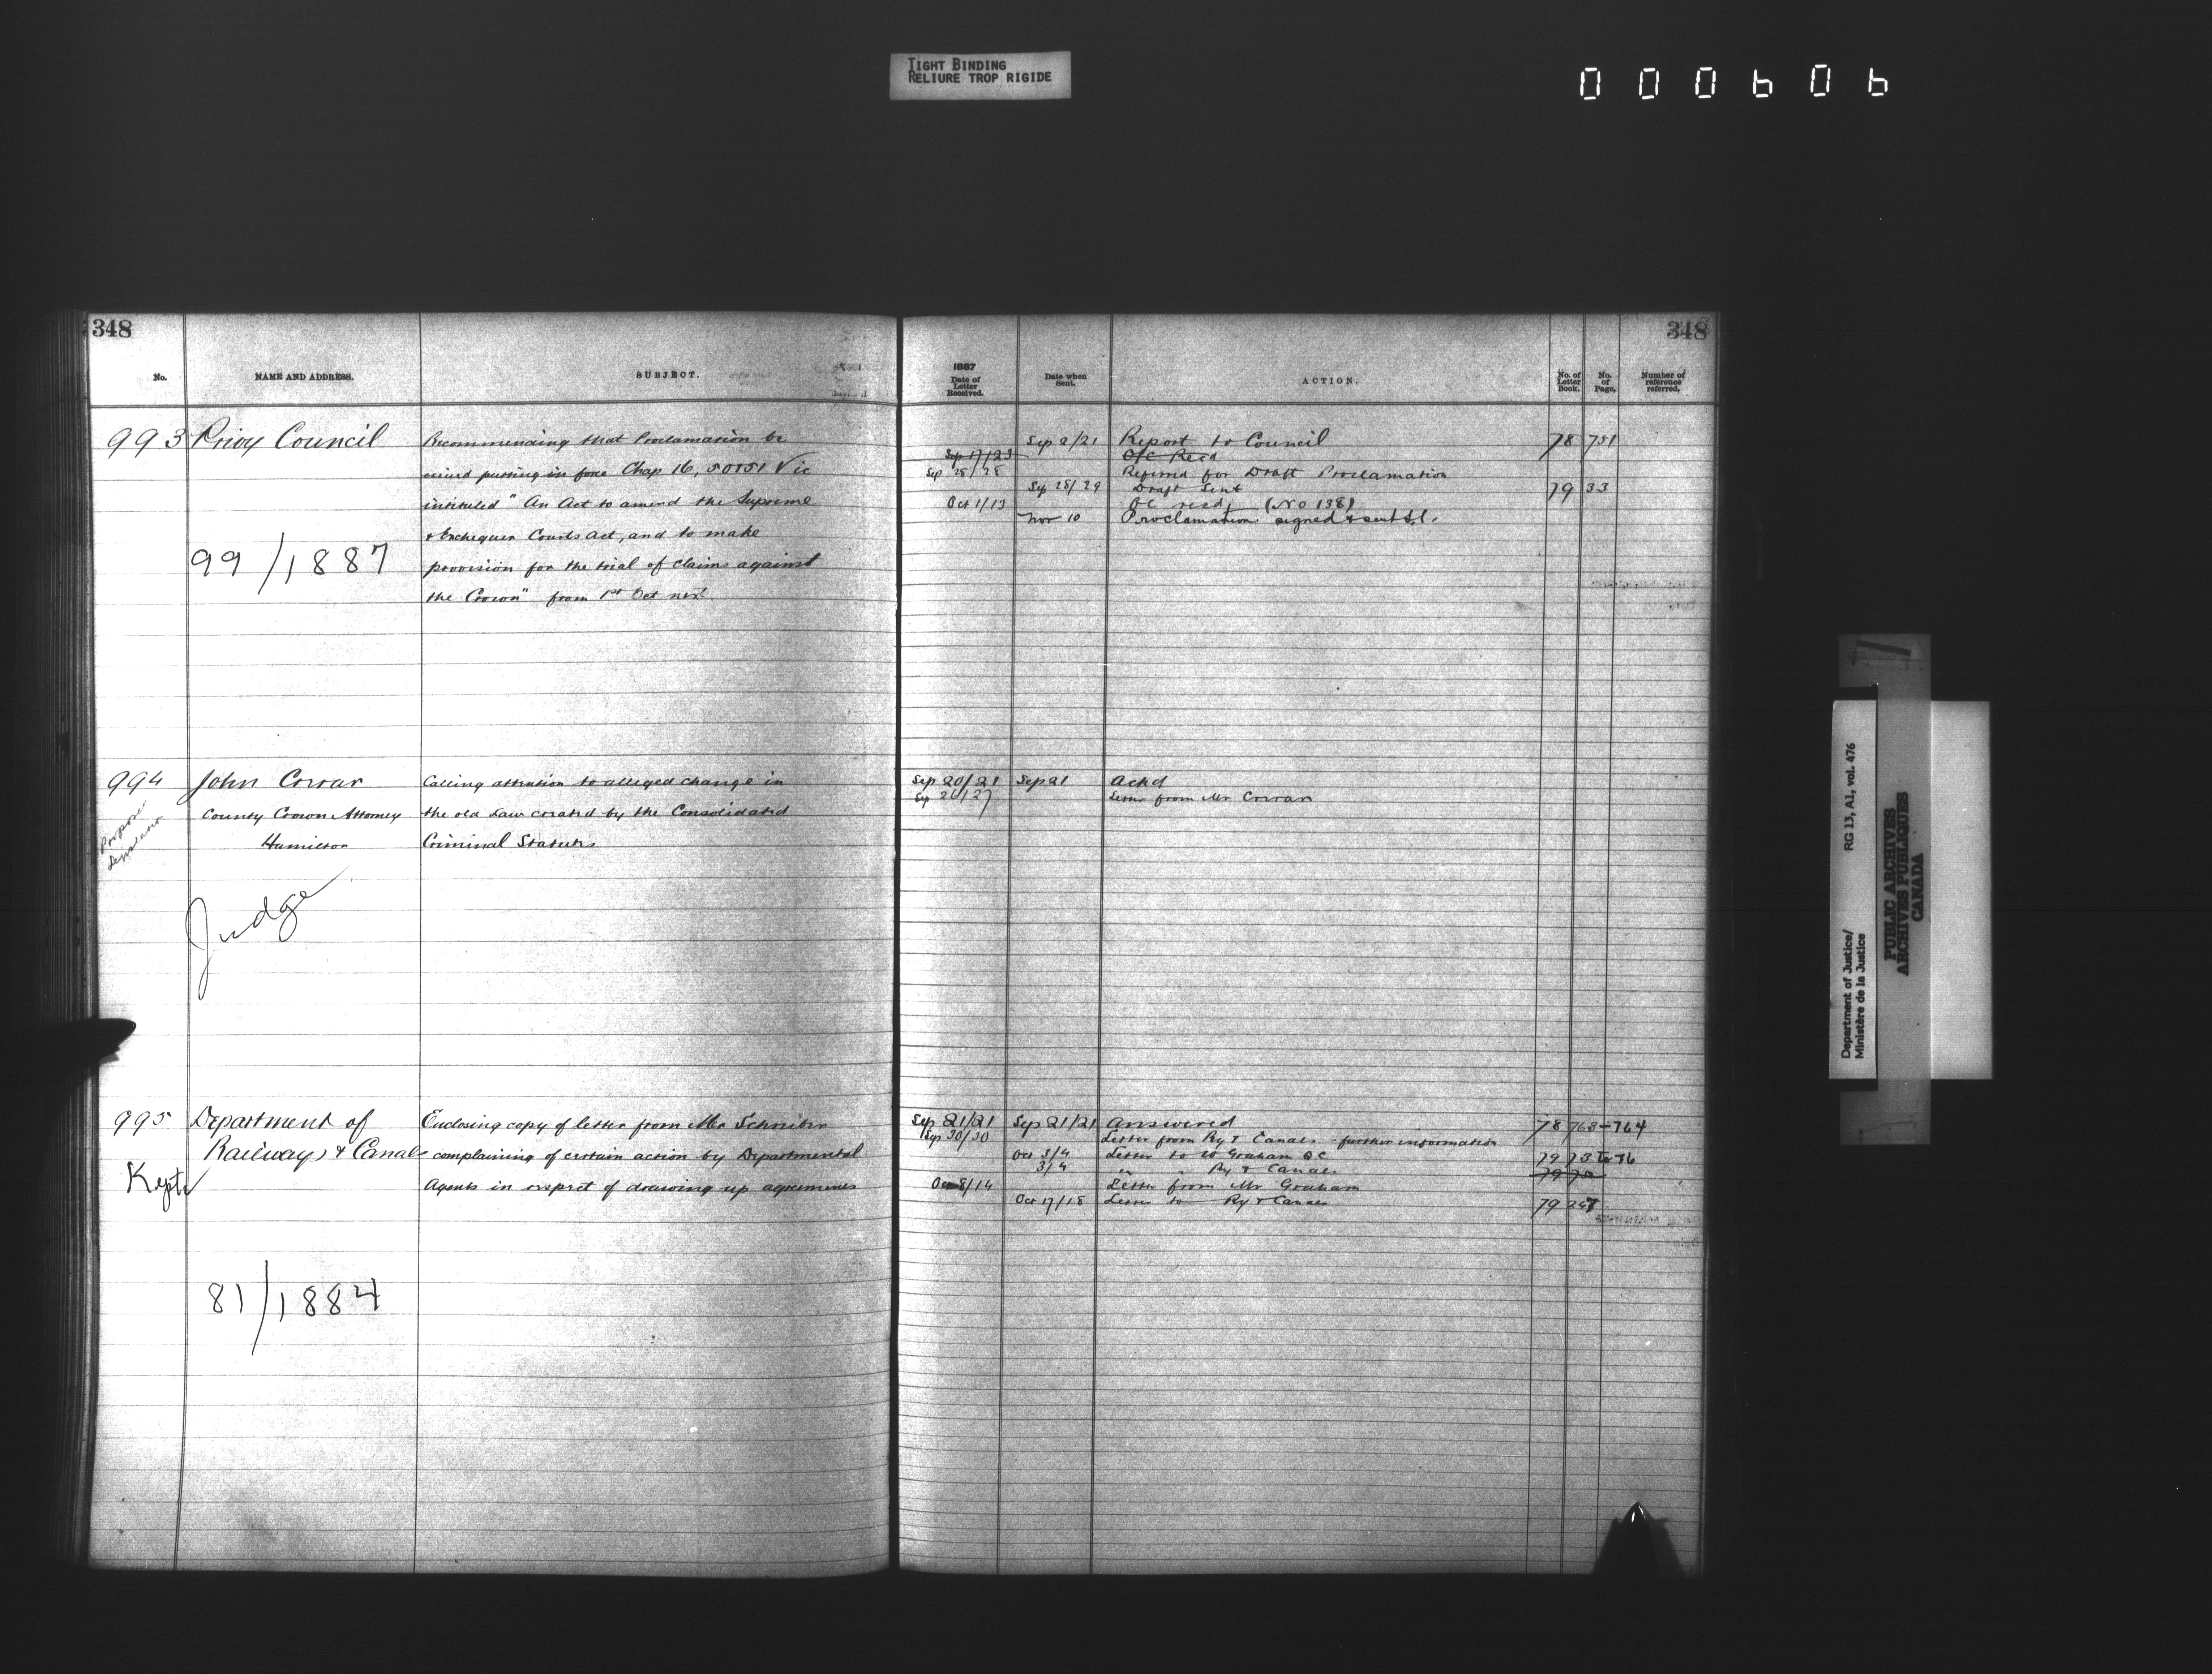 TIGHT BINDING
RELIURE TROP RIGIDE
000606
348
No.
NAME AND ADDRESS.
SUBJECT.
993 Privy Council
Recommending that Proclamation be
issued putting in force Chap 16, 50 & 51 Vic
intituled "An Act to amend the Supreme
& Exchequer Courts Act, and to make
provision for the trial of claims against
the Crown" from 1st Oct next.
99/1887
994 John Crerar
County Crown Attorney
Hamilton
Calling attention to alleged change in
the old Law created by the Consolidated
Criminal Statutes
Judge
995 Department of
Railways & Canals
Enclosing copy of letter from Mr Schreiber
complaining of certain action by Departmental
Agents in respect of drawing up agreements
Kept
81/1884
348
1887
Date of Letter Received.
Date when Sent.
ACTION.
No. of Letter Book.
No. of Page.
Number of reference referred.
Sep 2/21 Report to Council 78 751
Sep 17/23 O/C Recd
Sep 28/28 Referred for Draft Proclamation
Sep 28/29 Draft Sent 79 33
Oct 1/13 OC recd, (No 138)
Nov 10 Proclamation signed & sent S.S.
Sep 20/21 Sep 21 Ackd
Sep 26/27 Letter from Mr Crerar
Sep 21/21 Sep 21/21 Answered 78 763-764
Sep 30/30 Letter from Ry & Canals - further information
Oct 3/4 Letter to W Graham QC 79 73 to 76
3/4 " " Ry & Canals 79 72
Oct 8/14 Letter from Mr Graham
Oct 17/18 Letter to Ry & Canals 79 247
Department of Justice/
Ministère de la Justice
RG 13, A1, vol. 476
PUBLIC ARCHIVES
ARCHIVES PUBLIQUES
CANADA